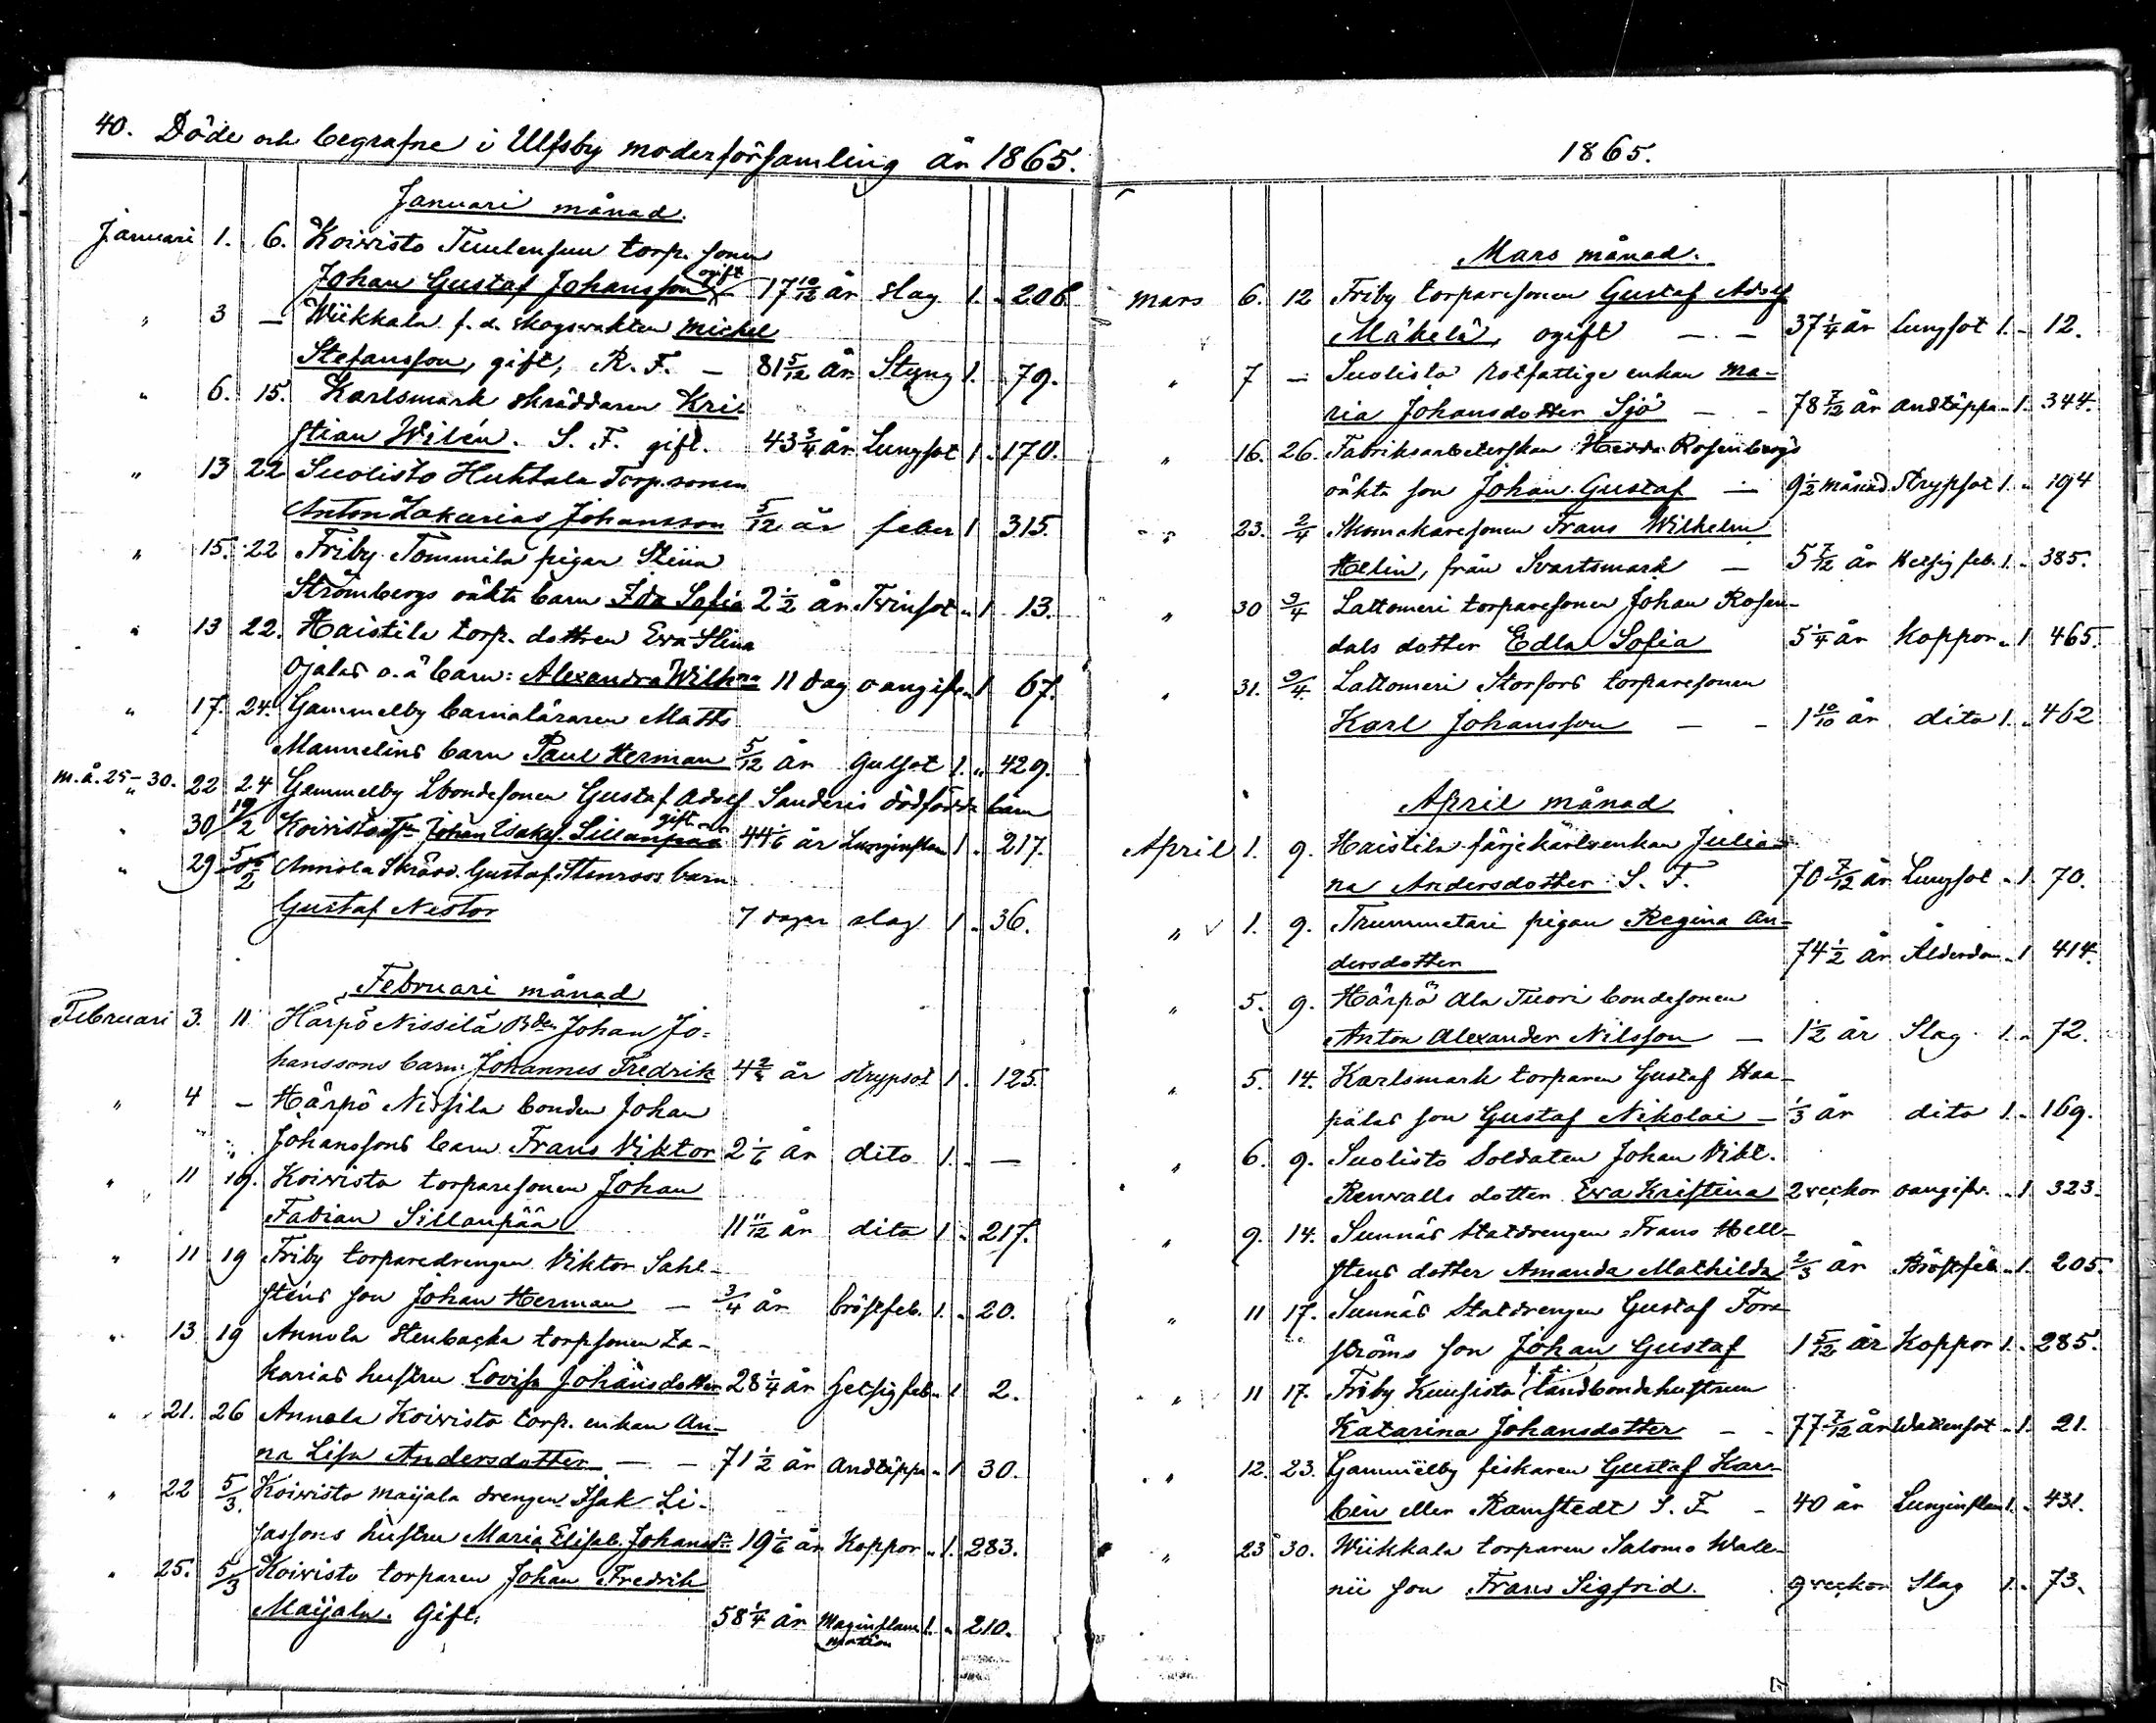 40. Döde och begrafne i Ulfsby moderförsamling år 1865.
Januari månad.
Januari 1. 6. Koivisto Tuulensuu torp. sonen
Johan Gustaf Johansson ogift 17 10/12 år slag 1. 206
" 3 — Wiikkala f.d. skogsvakten Michel
Stefansson, gift, R. F. — 81 5/12 år Styng 1. 79.
" 6. 15. Karlsmark skräddaren Kri-
stian Wilén. S. F. gift. 43 3/4 år Lungsot 1. 170.
" 13 22 Suolisto Huhtala Torp.sonen
Anton Zakarias Johansson 5/12 år feber 1 315.
" 15. 22 Friby Tommila pigan Stina
Strömbergs oäkta barn Ida Sofia 2 1/2 år Tvinsot " 1 13.
" 13 22. Haistila torp. dottren Eva Stina
Ojalas o.ä barn: Alexandra Wilhna 11 dag oangifven 1 67.
" 17. 24. Gammelby barnaläraren Matts
Mannelins barn Paul Herman 5/12 år Gulsot 1. " 429.
m.å. 25–30. " 22 24 Gammelby Lbondesonen Gustaf Adolf Sanderis dödfödda barn
" 30 19/2 Koivisto Johan Isaks. Sillanpää gift 44 1/6 år Lunginflam 1 " 217.
" 29 5/2 Annola Skräd. Gustaf Stenroos barn
Gustaf Nestor 7 dagar slag 1 " 36.
Februari månad
Februari 3. 11 Härpö Nissilä Bden Johan Jo-
hanssons barn: Johannes Fredrik 4 år strypsot 1. 125.
" 4 — Härpö Nissila bonden Johan
Johanssons barn Frans Viktor 2 1/6 år dito 1. " —
" 11 19. Koivisto torparesonen Johan
Fabian Sillanpää 11 11/12 år dito 1 " 217.
" 11 19 Friby torparedrengen Viktor Sahl-
sténs son Johan Herman — 3/4 år bröstfeb. 1. " 20.
" 13 19 Annola Stenbacka torpsonen Za-
karias hustru Lovisa Johansdotter 28 1/4 år Hetsig feb " 1 2.
" 21. 26 Annola Koivisto torp. enkan An-
na Lisa Andersdotter — — 71 1/2 år Andtäppa " 1 30.
" 22 5/3. Koivisto Maijala drengen Isak Li-
sassons hustru Maria Elisab. Johansdr 19 1/6 år Koppor " 1. 283.
" 25. 5/3 Koivisto torparen Johan Fredrik
Maijala. Gift. 58 1/4 år Maginflam 1. " 210.
mation
1865.
Mars månad.
Mars 6. 12 Friby torparesonen Gustaf Adolf
Mäkelä, ogift — — 37 1/4 år Lungsot 1. " 12.
" 7 — Suolisto rotfattige enkan Ma-
ria Johansdotter Sjö — — 78 7/12 år Andtäppa " 1. 344.
" 16. 26. Fabriksarbeterskan Hedda Rosenbergs
oäkta son Johan Gustaf — 9 1/2 månad Strypsot 1. " 194
" 23. 2/4 Skomakaresonen Frans Wilhelm
Helin, från Svartsmark — 5 7/12 år Hetsig feb. 1. " 385.
" 30 9/4 Lattomeri torparesonen Johan Rosen-
dals dotter Edla Sofia 5 1/4 år Koppor " 1 465.
" 31. 9/4. Lattomeri Storfors torparesonen
Karl Johansson — — 1 10/10 år dito 1. " 462
April månad
April 1. 9. Haistila färjekarlsenkan Julia-
na Andersdotter S. F. 70 7/12 år Lungsot " 1 70.
" 1. 9. Trummetari pigan Regina An-
dersdotter 74 1/2 år Ålderdom " 1 414.
" 5. 9. Härpö Ala Tuori bondesonen
Anton Alexander Nilsson — 1 1/2 år Slag 1. " 72.
" 5. 14. Karlsmark torparen Gustaf Haa-
palas son Gustaf Nikolai — 1/3 år dito 1. " 169.
" 6. 9. Suolisto Soldaten Johan Vikt.
Renvalls dotter Eva Kristina 2 veckor oangifv. " 1 323.
" 9. 14. Sunnäs Statdrengen Frans Hell-
stens dotter Amanda Mathilda 2/3 år Bröstfeb. " 1. 205.
" 11 17. Sunnäs Statdrengen Gustaf Fors-
ströms son Johan Gustaf 1 5/12 år Koppor 1. " 285.
" 11 17. Friby Kuusisto f.d. landbondehustrun
Katarina Johansdotter — — 77 7/12 år Wattensot " 1. 21.
" 12. 23. Gammelby fiskaren Gustaf Kar-
bin eller Ramstedt S. F. — 40 år Lunginflam 1. " 431.
" 23 30. Wiikkala torparen Salomo Wall-
nii son Frans Sigfrid. 9 veckor Slag 1. " 73.